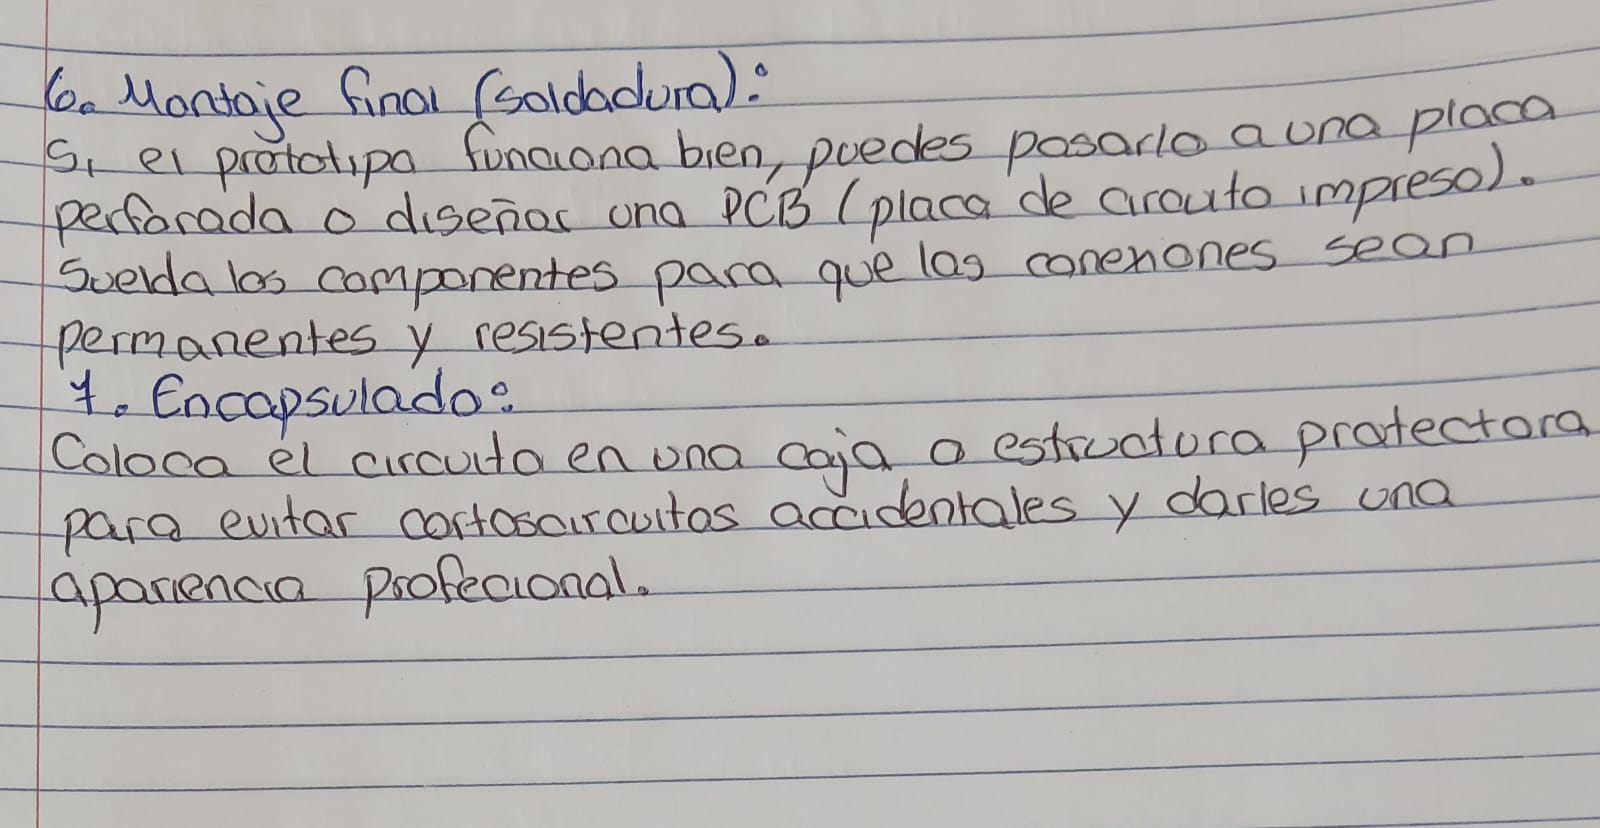 6. Montaje final (soldadura):
Si el prototipo funciona bien, puedes pasarlo a una placa
perforada o diseñar una PCB (placa de circuito impreso).
Suelda los componentes para que las conexiones sean
permanentes y resistentes.
7. Encapsulado:
Coloca el circuito en una caja o estructura protectora
para evitar cortoscircuitos accidentales y darles una
apariencia profecional.